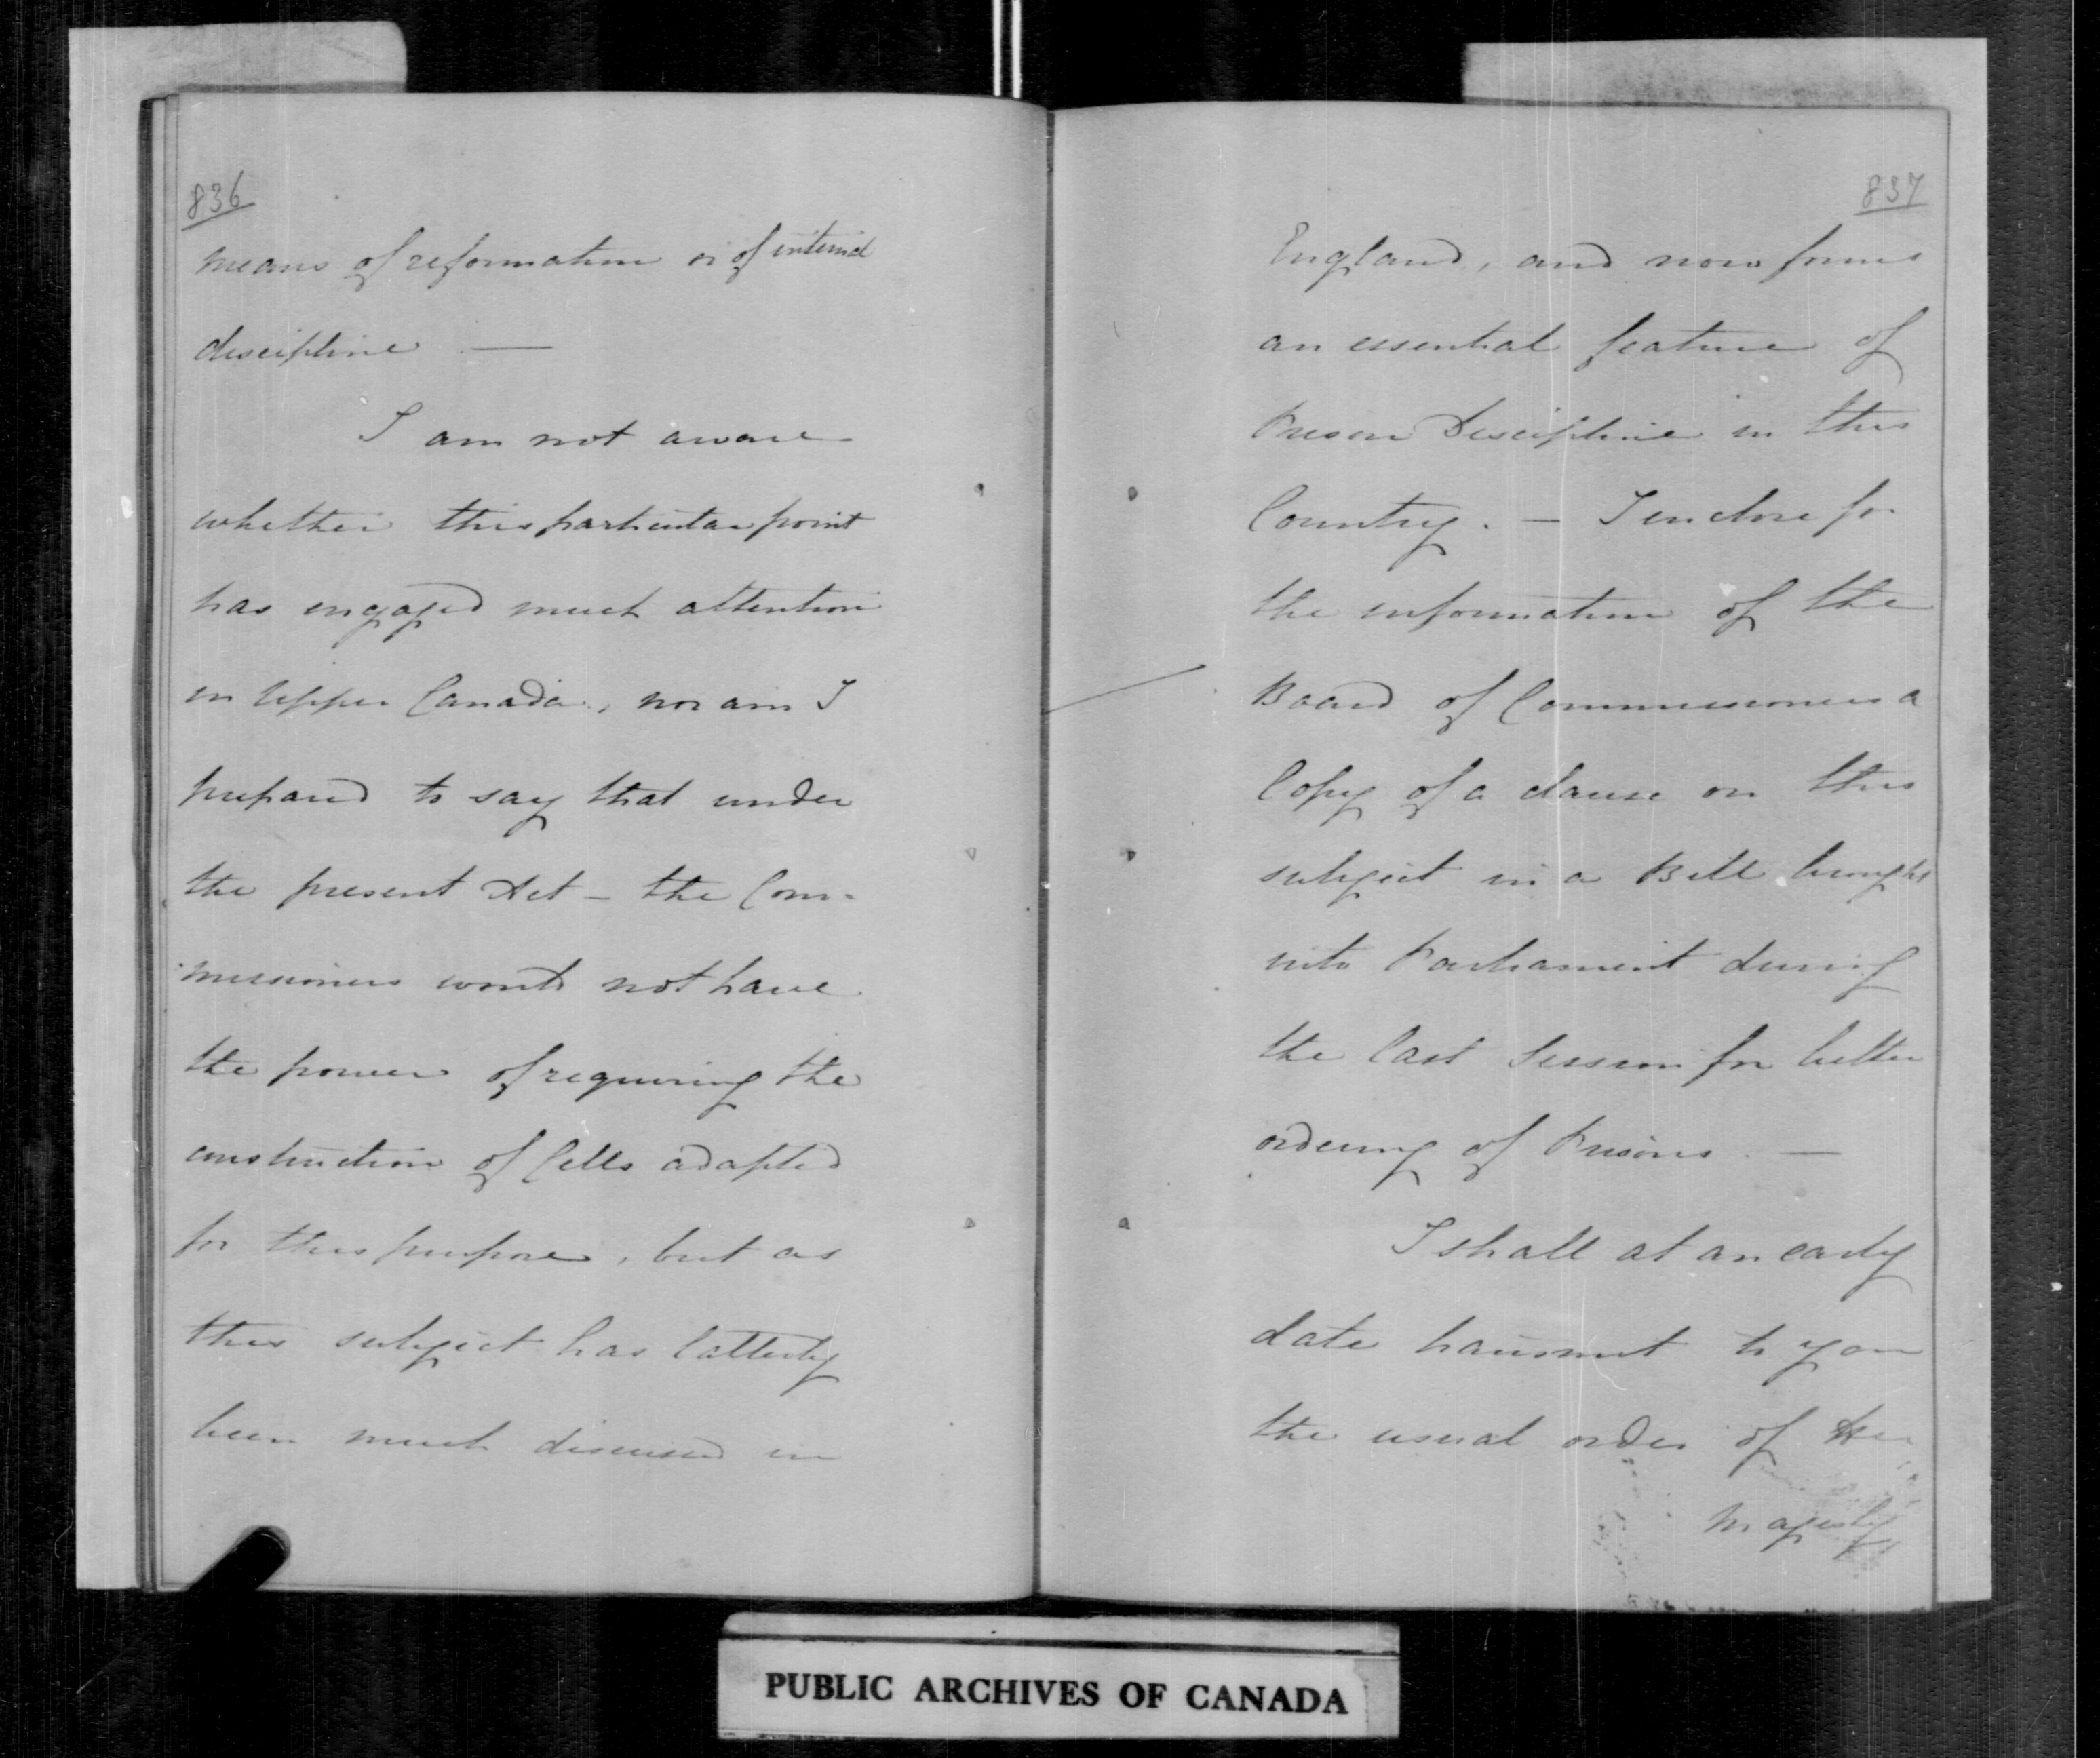 836
means of reformation or of internal
discipline —
I am not aware
whether this particular point
has engaged much attention
in Upper Canada, nor am I
prepared to say that under
the present Act – the Com-
missioners would not have
the power of requiring the
construction of Cells adapted
for this purpose, but as
this subject has latterly
been much discussed in
837
England, and now forms
an essential feature of
Prison Discipline in this
Country. — I enclose for
the information of the
Board of Commissioners a
Copy of a clause on this
subject in a Bill brought
into Parliament during
the last Session for better
ordering of Prisons. —
I shall at an early
date transmit to you
the usual order of Her
Majesty
PUBLIC ARCHIVES OF CANADA